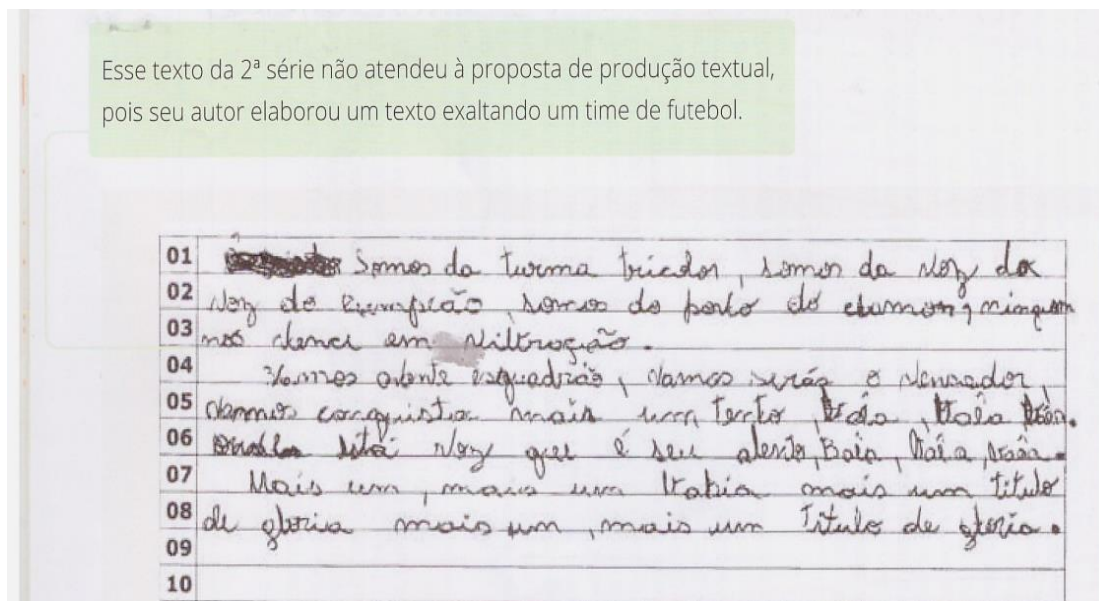 Esse texto da 2ª série não atendeu à proposta de produção textual,
pois seu autor elaborou um texto exaltando um time de futebol.
01 Somos da turma tricolor, somos da voz da
02 voz do somos do povo do ninguem
03 nos vence em
04 Vamos avante esquadrão, vamos serás o vensador,
05 vamos conquista mais um tento,
06 está voz que é seu alento, Baia, Baia,
07 Mais um, mais um Bahia mais um titulo
08 de gloria mais um, mais um Titulo de gloria.
09
10